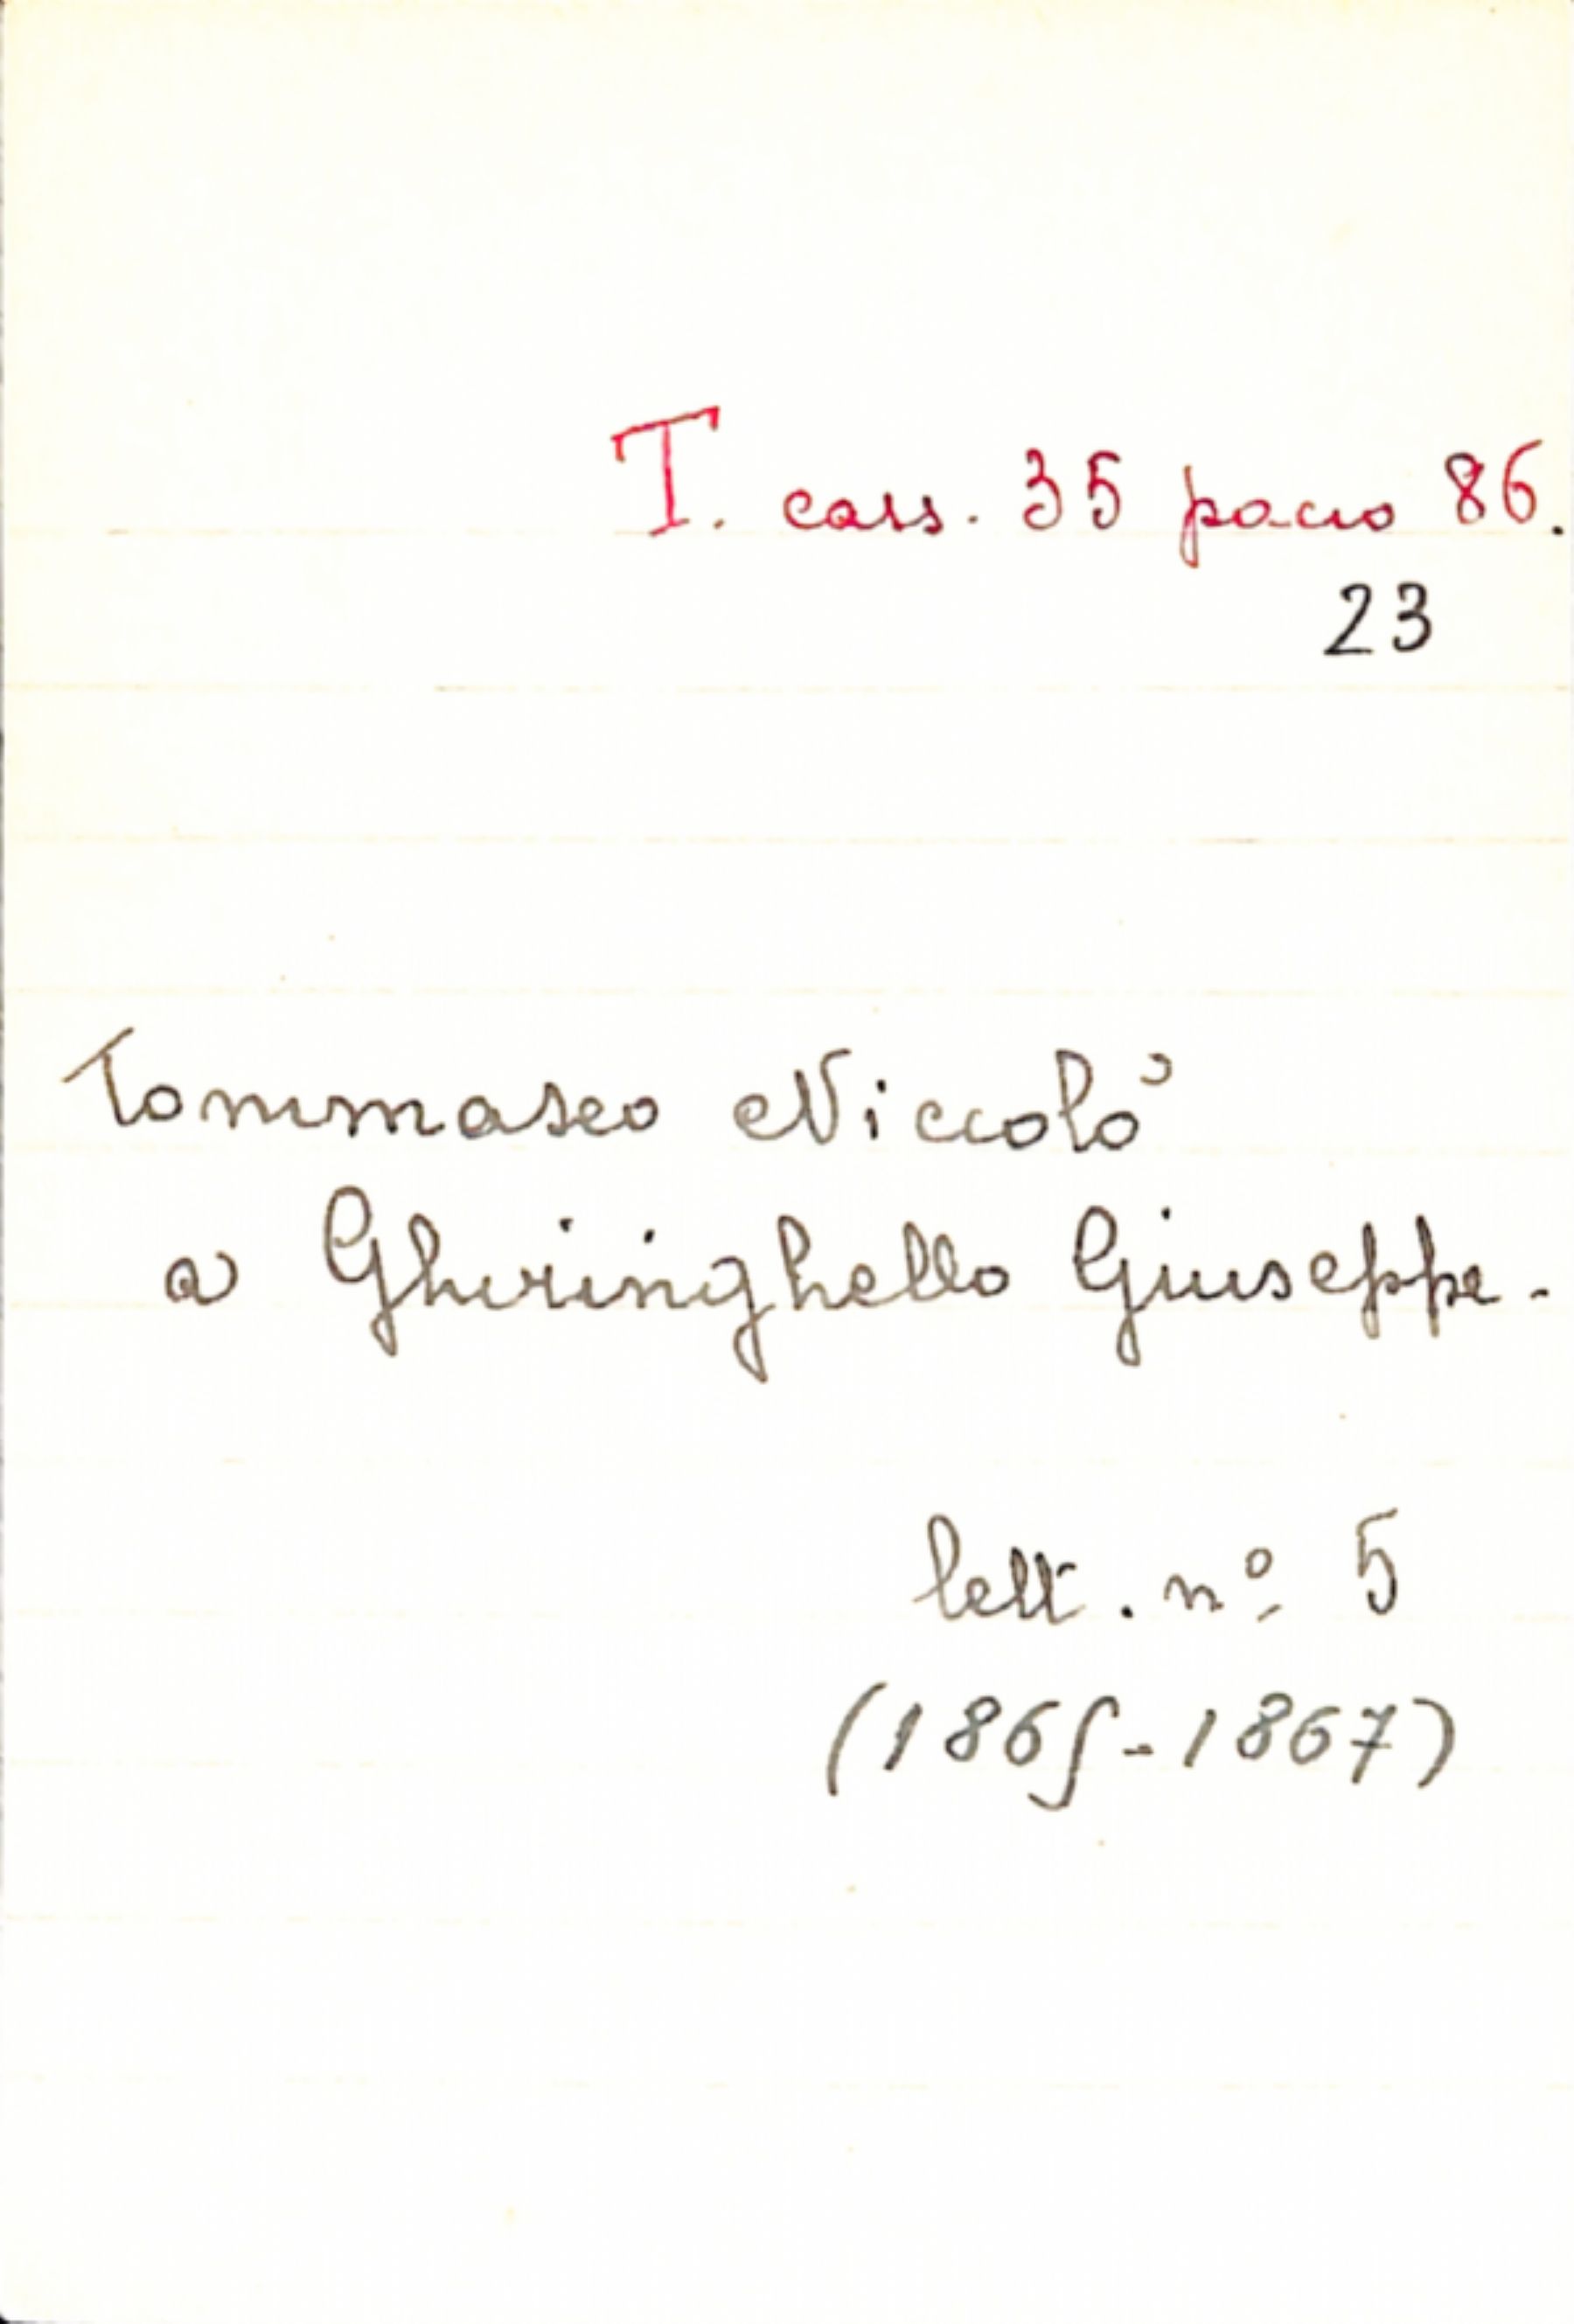 T. cass. 35 pacco 86.
23
Tommaseo Niccolò
a Ghiringhello Giuseppe.
lett. nº 5
(1865-1867)